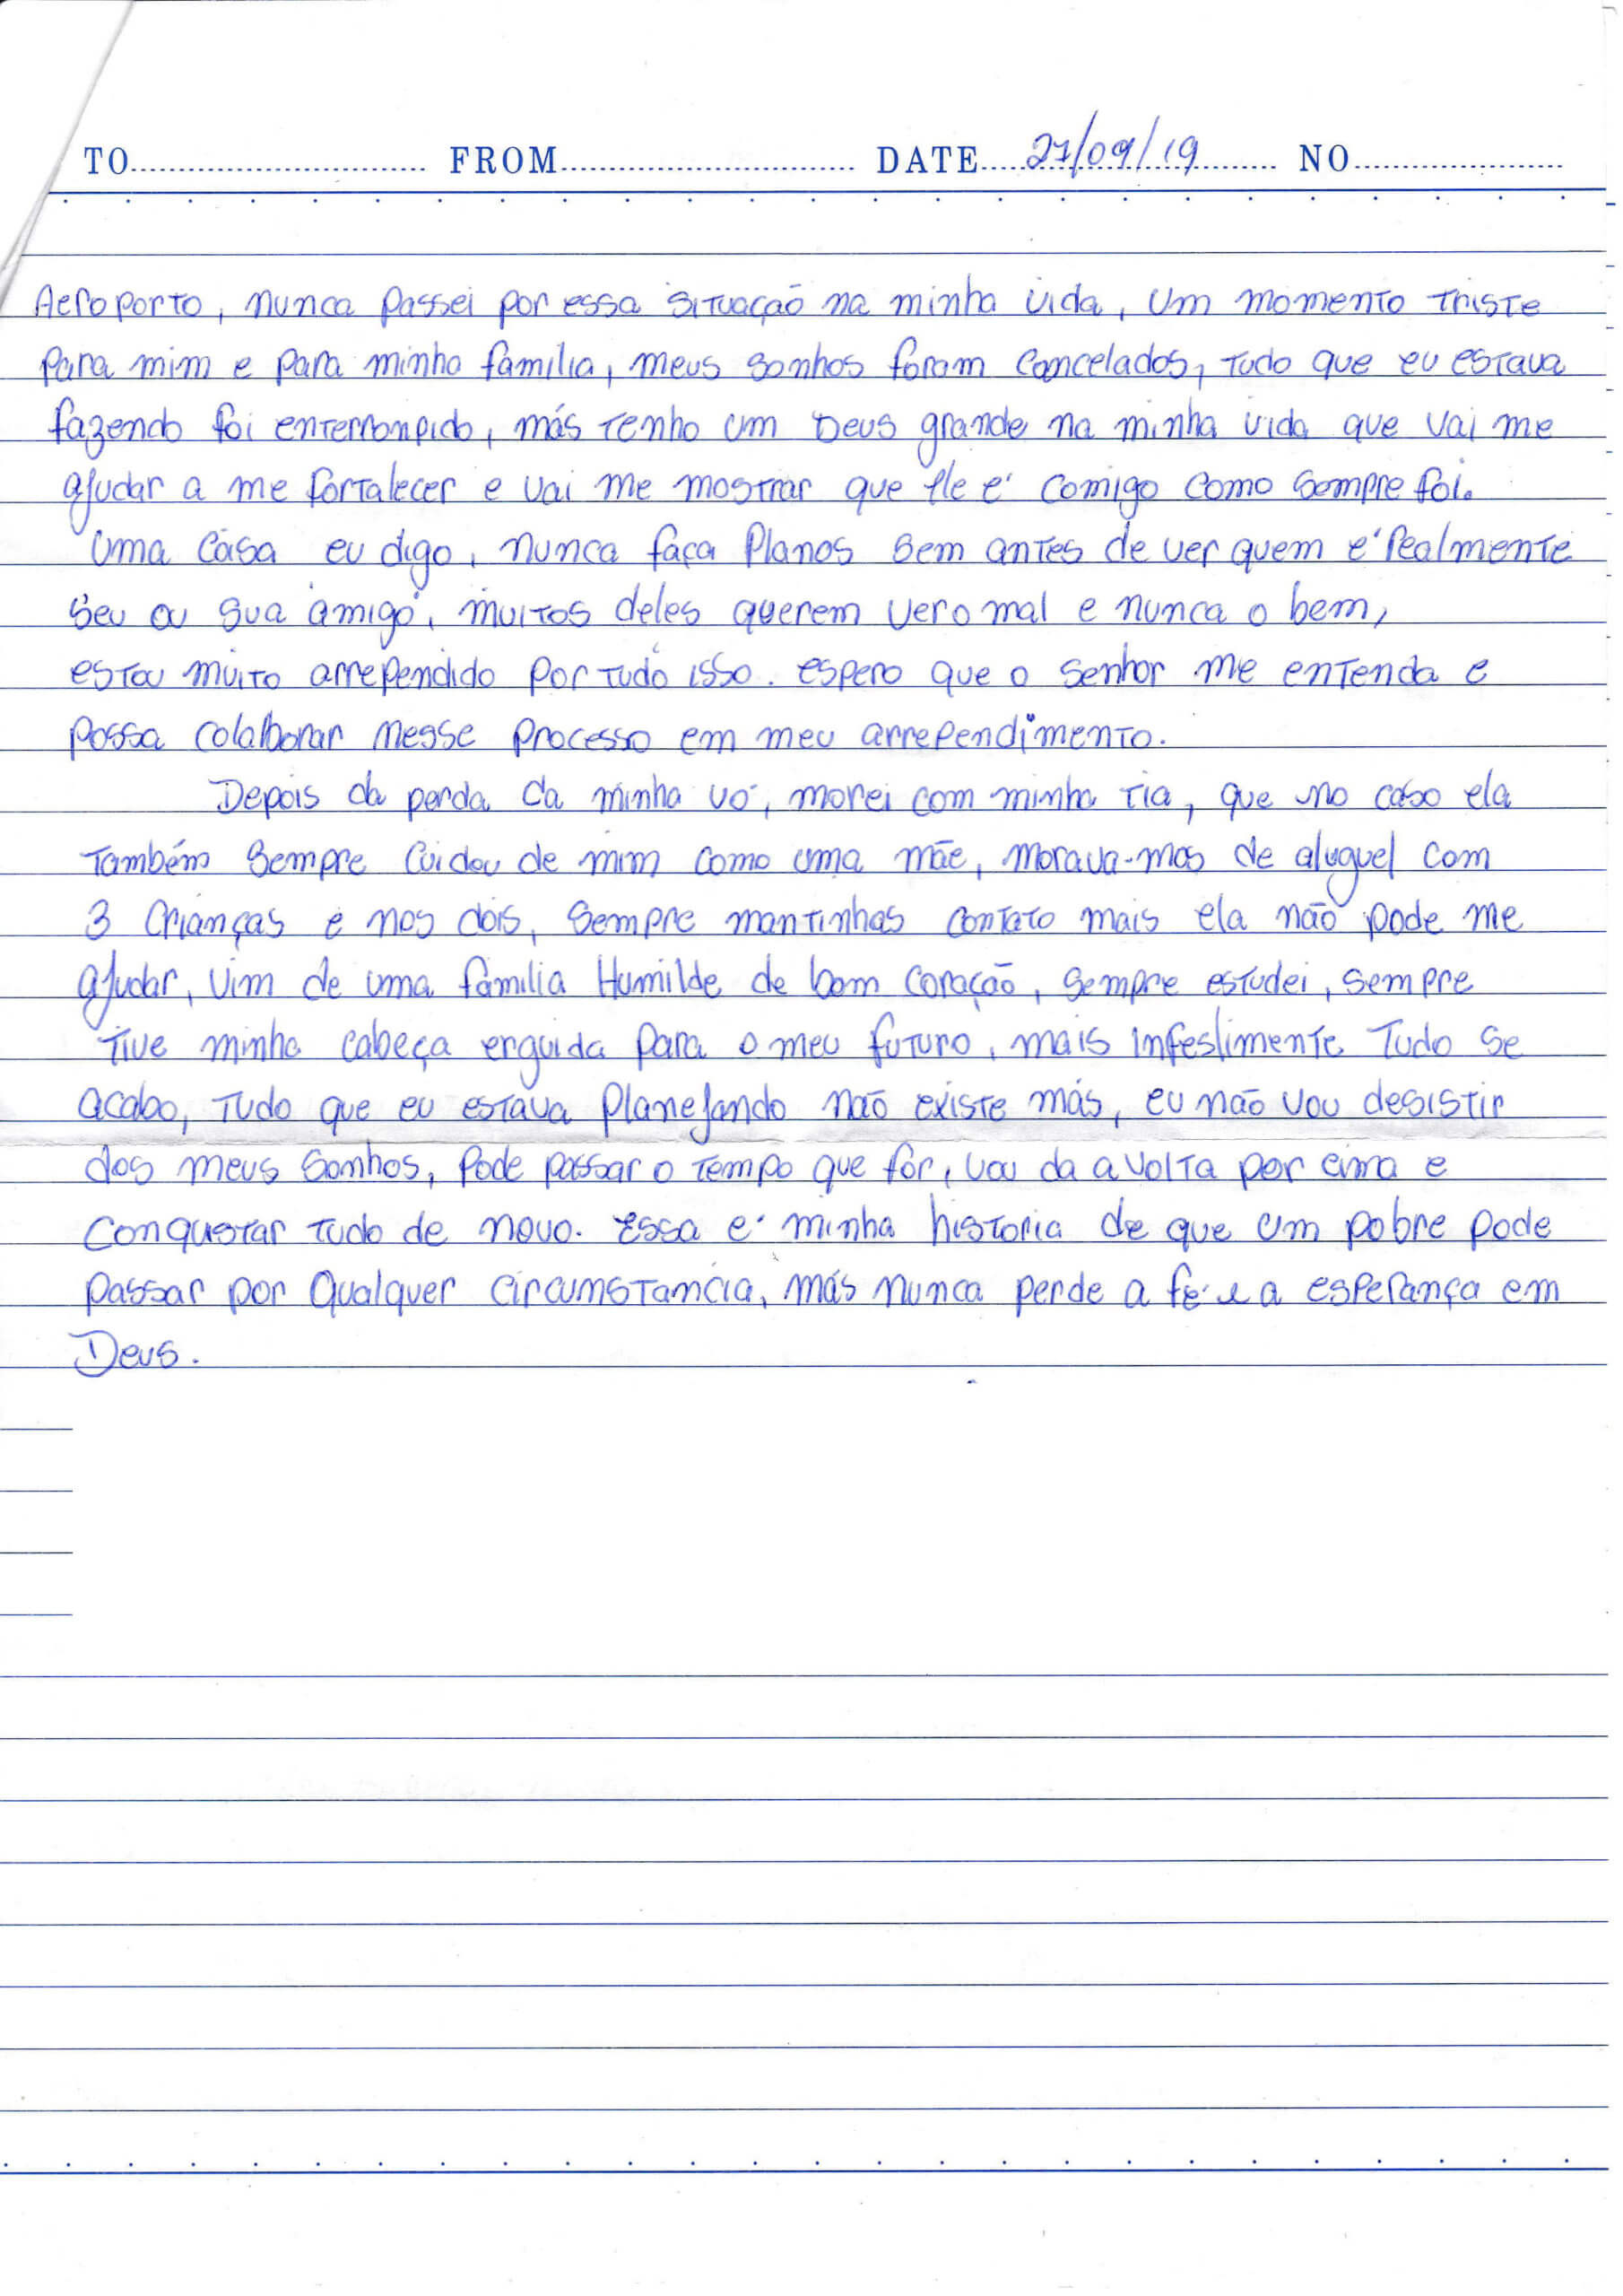 TO FROM DATE 27/09/19 NO
Aeroporto, nunca passei por essa situação na minha vida, um momento triste
para mim e para minha família, meus sonhos foram cancelados, tudo que eu estava
fazendo foi enterrompido, más tenho um Deus grande na minha vida que vai me
ajudar a me fortalecer e vai me mostrar que Ele é comigo como sempre foi.
Uma Casa eu digo, nunca faça planos sem antes de ver quem é realmente
seu ou sua amigo, muitos deles querem ver o mal e nunca o bem,
estou muito arrependido por tudo isso. espero que o senhor me entenda e
possa colaborar nesse processo em meu arrependimento.
Depois da perda da minha vó, morei com minha tia, que no caso ela
também sempre cuidou de mim como uma mãe, morava-mos de aluguel com
3 crianças e nos dois, sempre mantinhas contato mais ela não pode me
ajudar, vim de uma família Humilde de bom coração, sempre estudei, sempre
tive minha cabeça erguida para o meu futuro, mais infeslimente tudo se
acabo, tudo que eu estava planejando não existe más, eu não vou desistir
dos meus sonhos, pode passar o tempo que for, vou da a volta por cima e
conquistar tudo de novo. Essa é minha historia de que um pobre pode
passar por qualquer circunstancia, más nunca perde a fé e a esperança em
Deus.